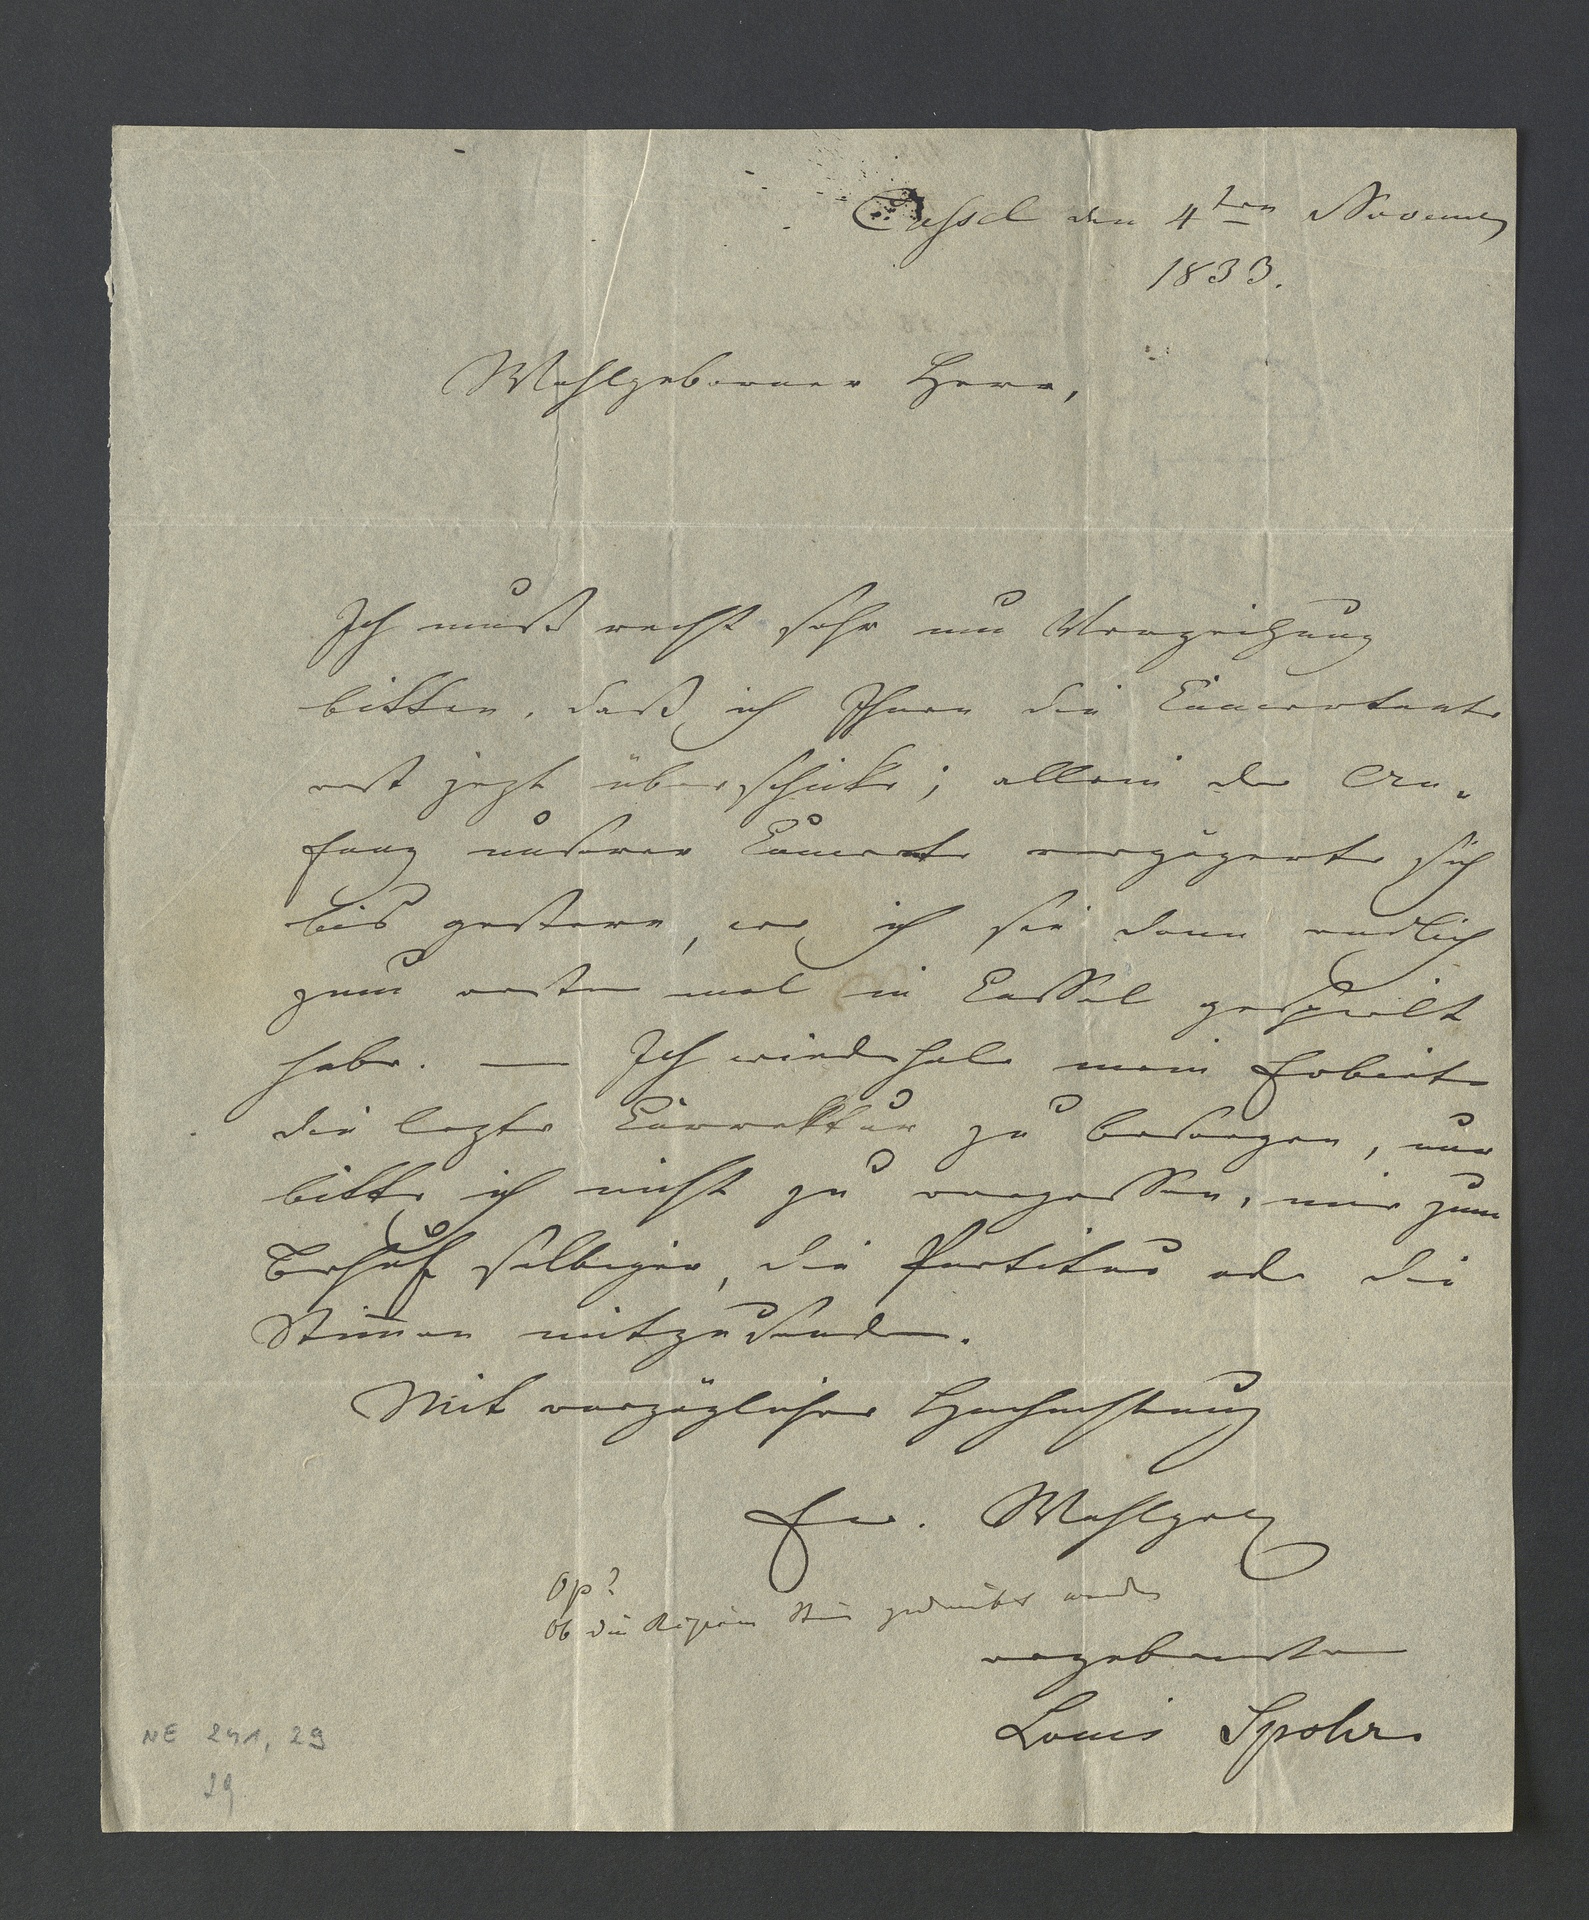 Cassel den 4ten November
1833.
Wohlgeborner Herr,
Ich muß recht sehr um Verzeihung
bitten, daß ich Ihnen die Concertante
erst jezt überschicke; allein der An-
fang unserer Concerte verzögerte sich
bis gestern, wo ich sie denn endlich
zum ersten mal in Cassel gespielt
habe. — Ich wiederhole mein Erbieten
die lezte Correktur zu besorgen, nur
bitte ich nicht zu vergessen, mir zum
Behuf selbiger, die Partitur oder die
Stimmen mitzusenden.
Mit vorzüglicher Hochachtung
Ew. Wohlgeb
Op?
Ob die Stim werden
ergebenster
Louis Spohr.
NE 241, 29
29